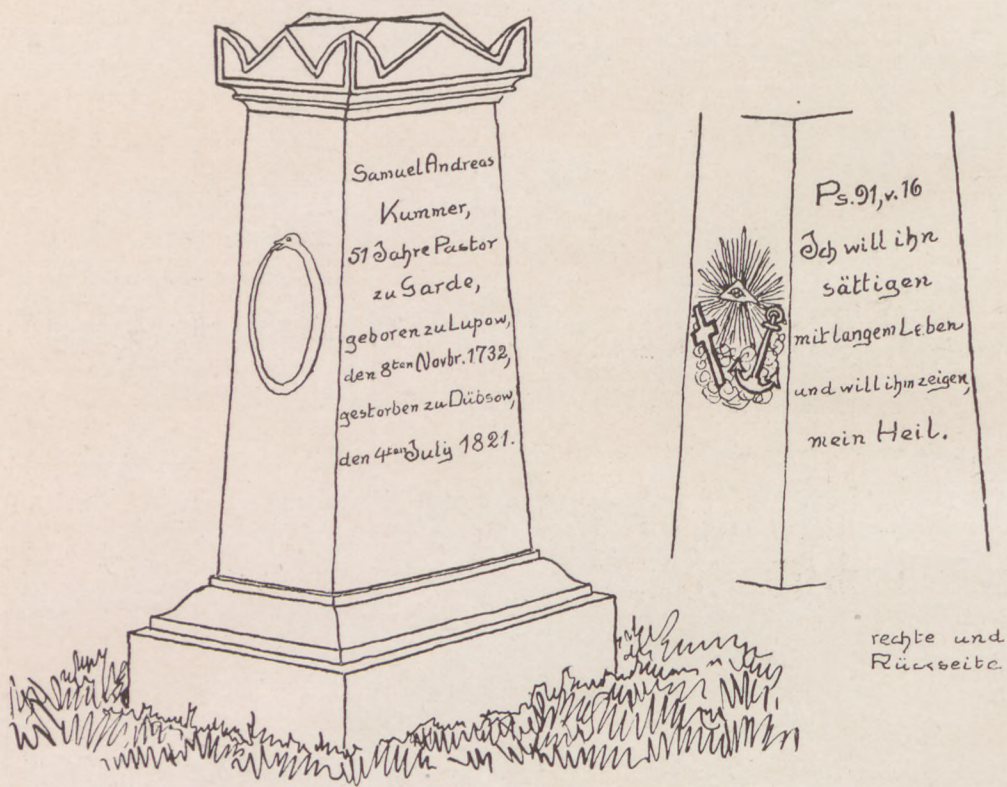 Samuel Andreas
Kummer,
51 Jahre Pastor
zu Garde,
geboren zu Lupow,
den 8ten Novbr. 1732,
gestorben zu Dübsow,
den 4ten July 1821.
Ps. 91, v. 16
Ich will ihn
sättigen
mit langem Leben
und will ihm zeigen,
mein Heil.
rechte und
Rückseite